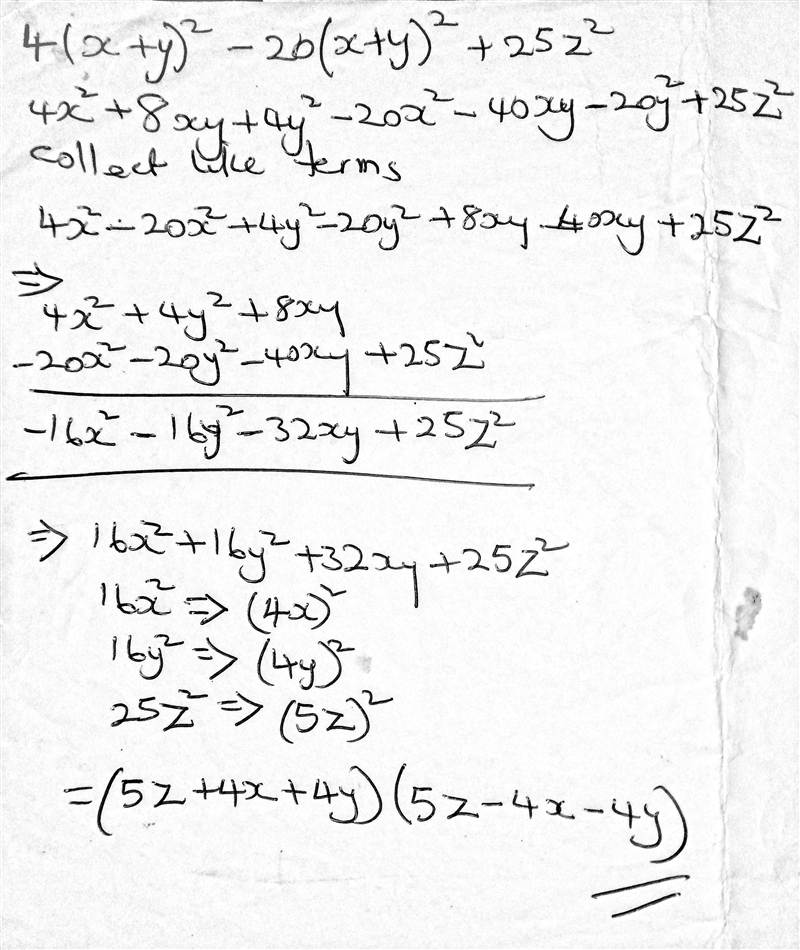 4(x+y)² - 20(x+y)² + 25z²
4x² + 8xy + 4y² - 20x² - 40xy - 20y² + 25z²
collect like terms
4x² - 20x² + 4y² - 20y² + 8xy - 40xy + 25z²
⇒
4x² + 4y² + 8xy
-20x² - 20y² - 40xy + 25z²
-16x² - 16y² - 32xy + 25z²
⇒ 16x² + 16y² + 32xy + 25z²
16x² ⇒ (4x)²
16y² ⇒ (4y)²
25z² ⇒ (5z)²
= (5z + 4x + 4y)(5z - 4x - 4y)